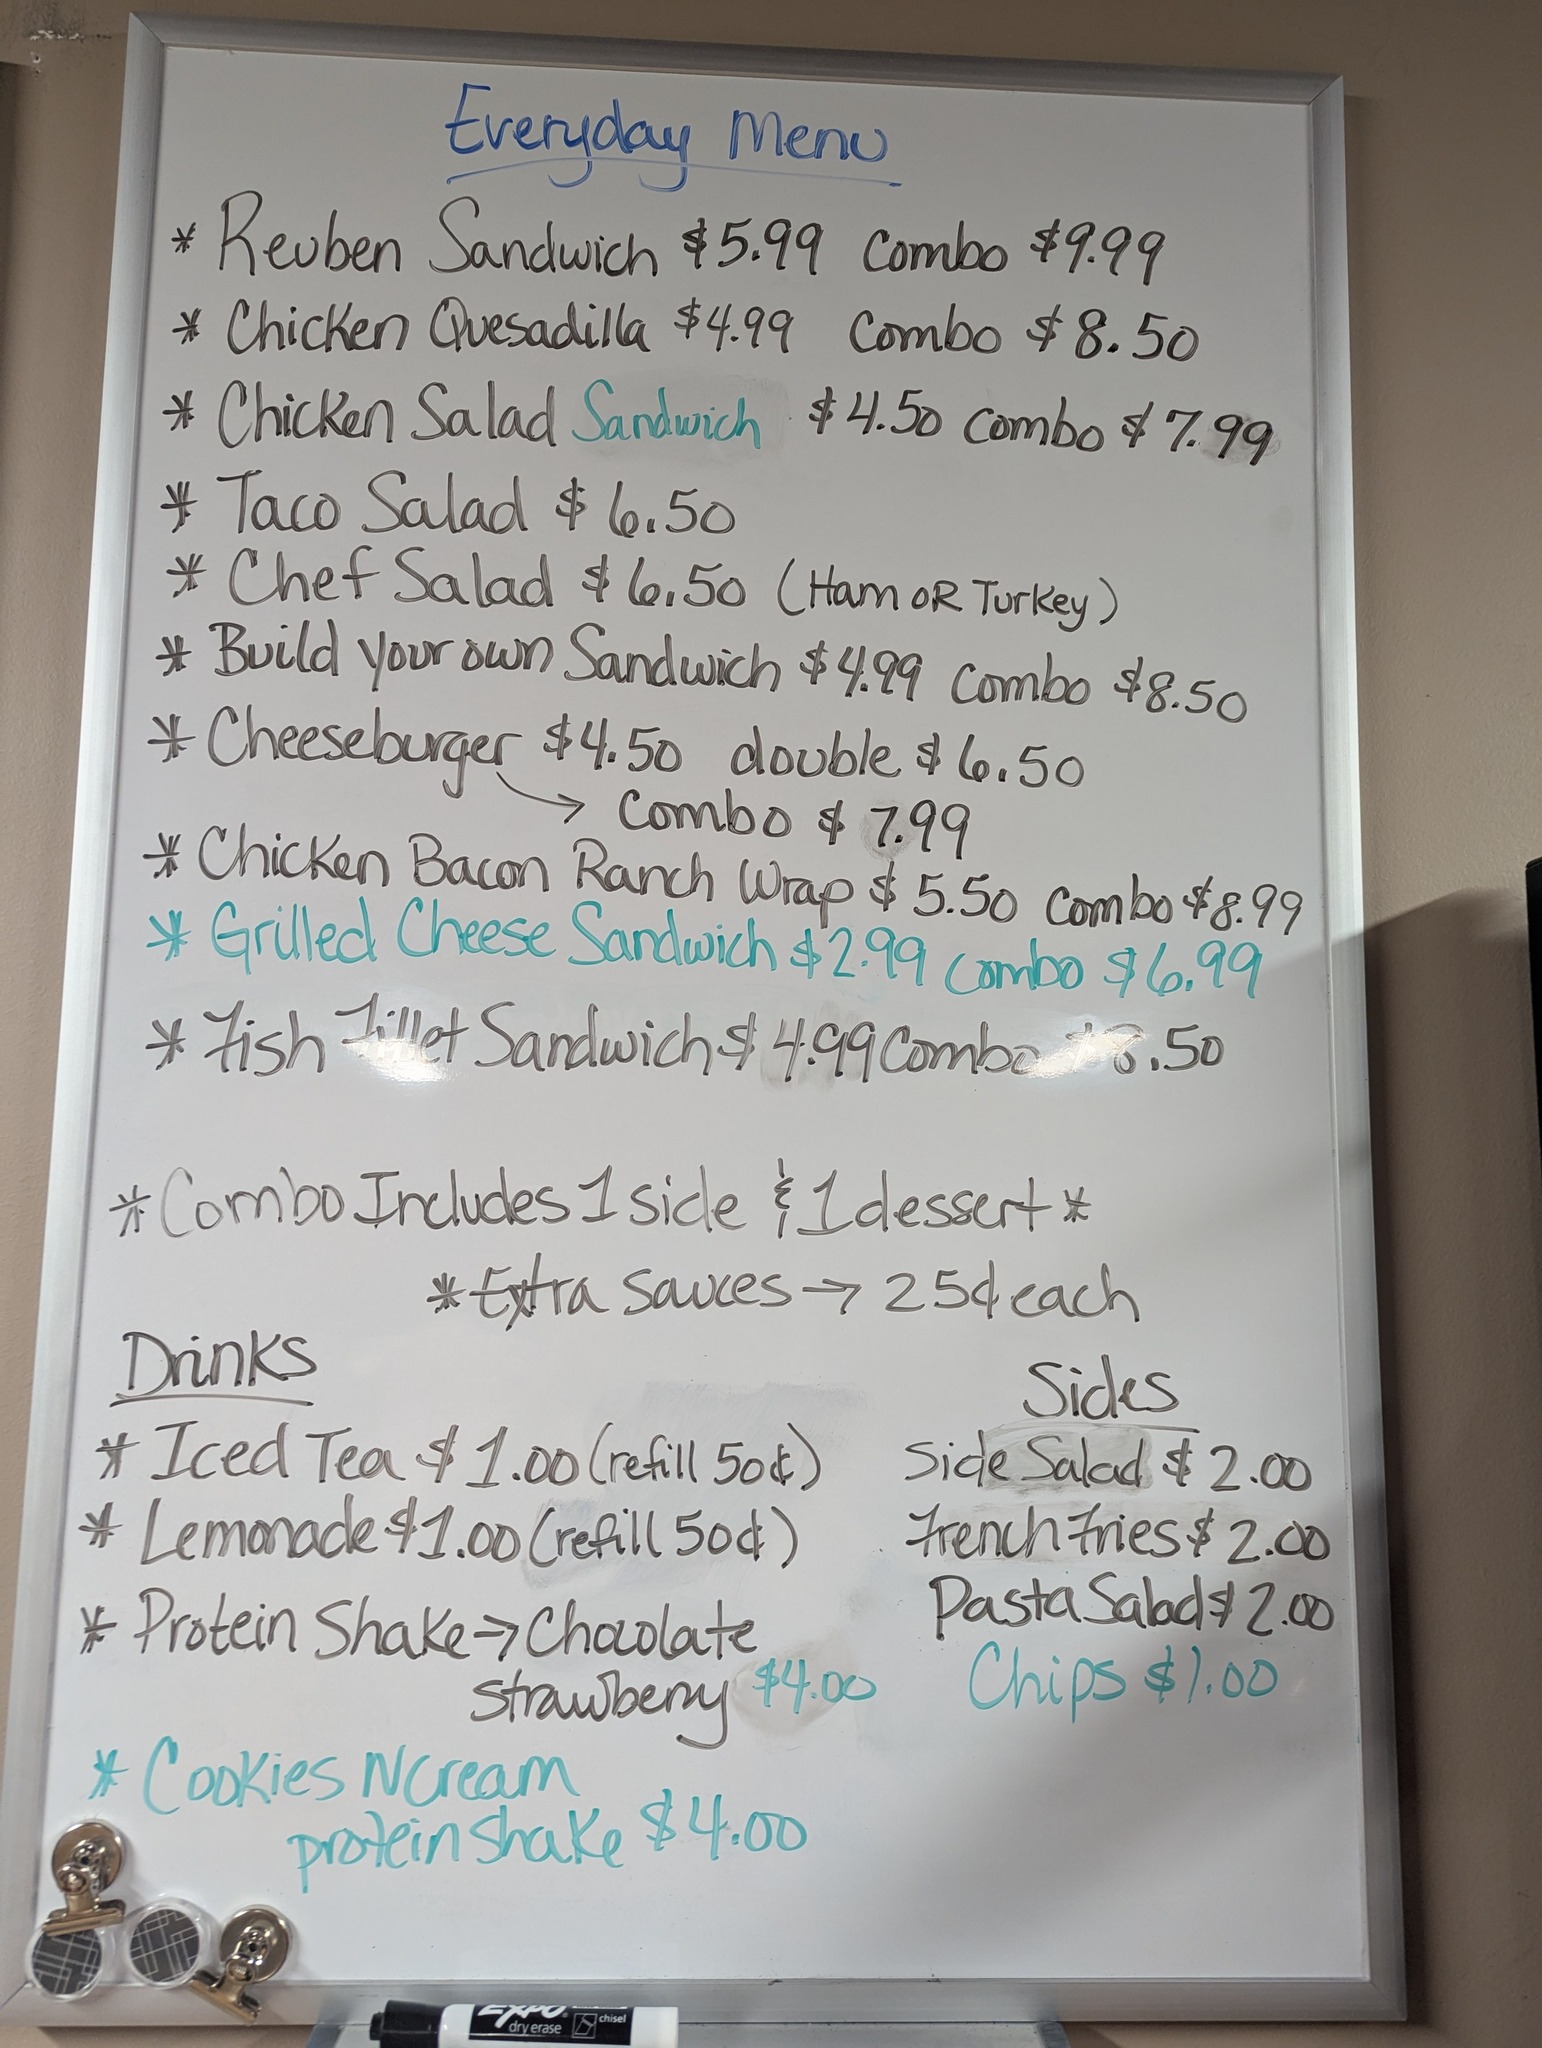 Everyday Menu
* Reuben Sandwich $5.99 Combo $9.99
* Chicken Quesadilla $4.99 Combo $8.50
* Chicken Salad Sandwich $4.50 Combo $7.99
* Taco Salad $6.50
* Chef Salad $6.50 (Ham OR Turkey)
* Build your own Sandwich $4.99 Combo $8.50
* Cheeseburger $4.50 double $6.50
→ Combo $7.99
* Chicken Bacon Ranch Wrap $5.50 Combo $8.99
* Grilled Cheese Sandwich $2.99 Combo $6.99
* Fish Fillet Sandwich $4.99 Combo $8.50
* Combo Includes 1 side & 1 dessert *
* Extra sauces → 25¢ each
Drinks
* Iced Tea $1.00 (refill 50¢)
* Lemonade $1.00 (refill 50¢)
* Protein Shake → Chocolate
strawberry $4.00
* Cookies N Cream
protein shake $4.00
Sides
Side Salad $2.00
French Fries $2.00
Pasta Salad $2.00
Chips $1.00
EXPO
dry erase chisel